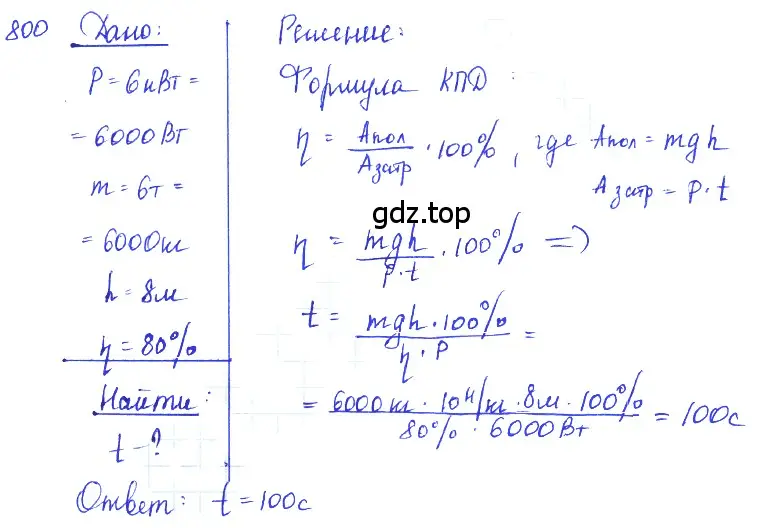 800 Дано:
P = 6кВт =
= 6000 Вт
m = 6т =
= 6000кг
h = 8м
η = 80%
Найти:
t - ?
Решение:
Формула КПД:
η = Aпол / Aзатр · 100%, где Aпол = mgh
Aзатр = P·t
gdz.top
η = mgh / P·t · 100% =>
t = mgh · 100% / η · P =
= 6000кг · 10 Н/кг · 8м · 100% / 80% · 6000Вт = 100с
Ответ: t = 100с